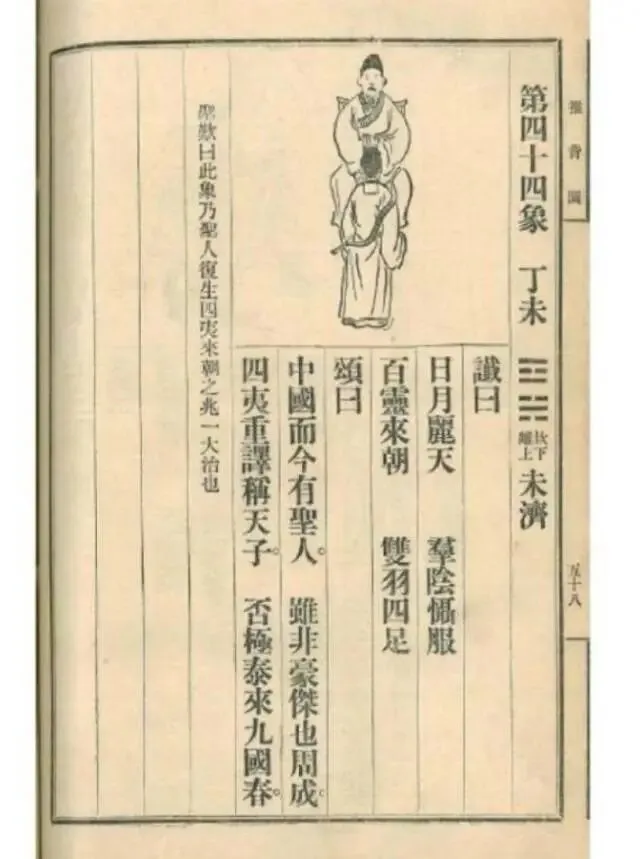 推背圖
五十八
第四十四象 丁未 ䷿ 坎下離上 未濟
讖曰
日月麗天 羣陰懾服
百靈來朝 雙羽四足
頌曰
中國而今有聖人。雖非豪傑也周成。
四夷重譯稱天子。否極泰來九國春。
聖歎曰此象乃聖人復生四夷來朝之兆一大治也